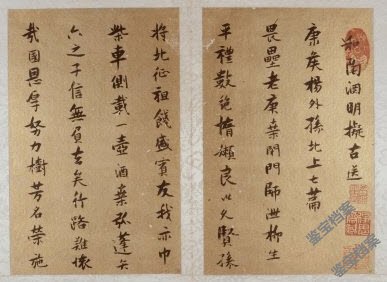 和陶淵明擬古送
康侯楊外孫北上七篇
畏壘老庚桑閉門師泄柳生
平禮數絕惰嬾良以久賢孫
將北征祖餞盛賓友我亦巾
柴車側載一壺酒桑弧蓬矢
六之子信無負去矣行路難懷
哉國恩厚努力樹芳名榮施
鉴宝档案
鉴宝档案